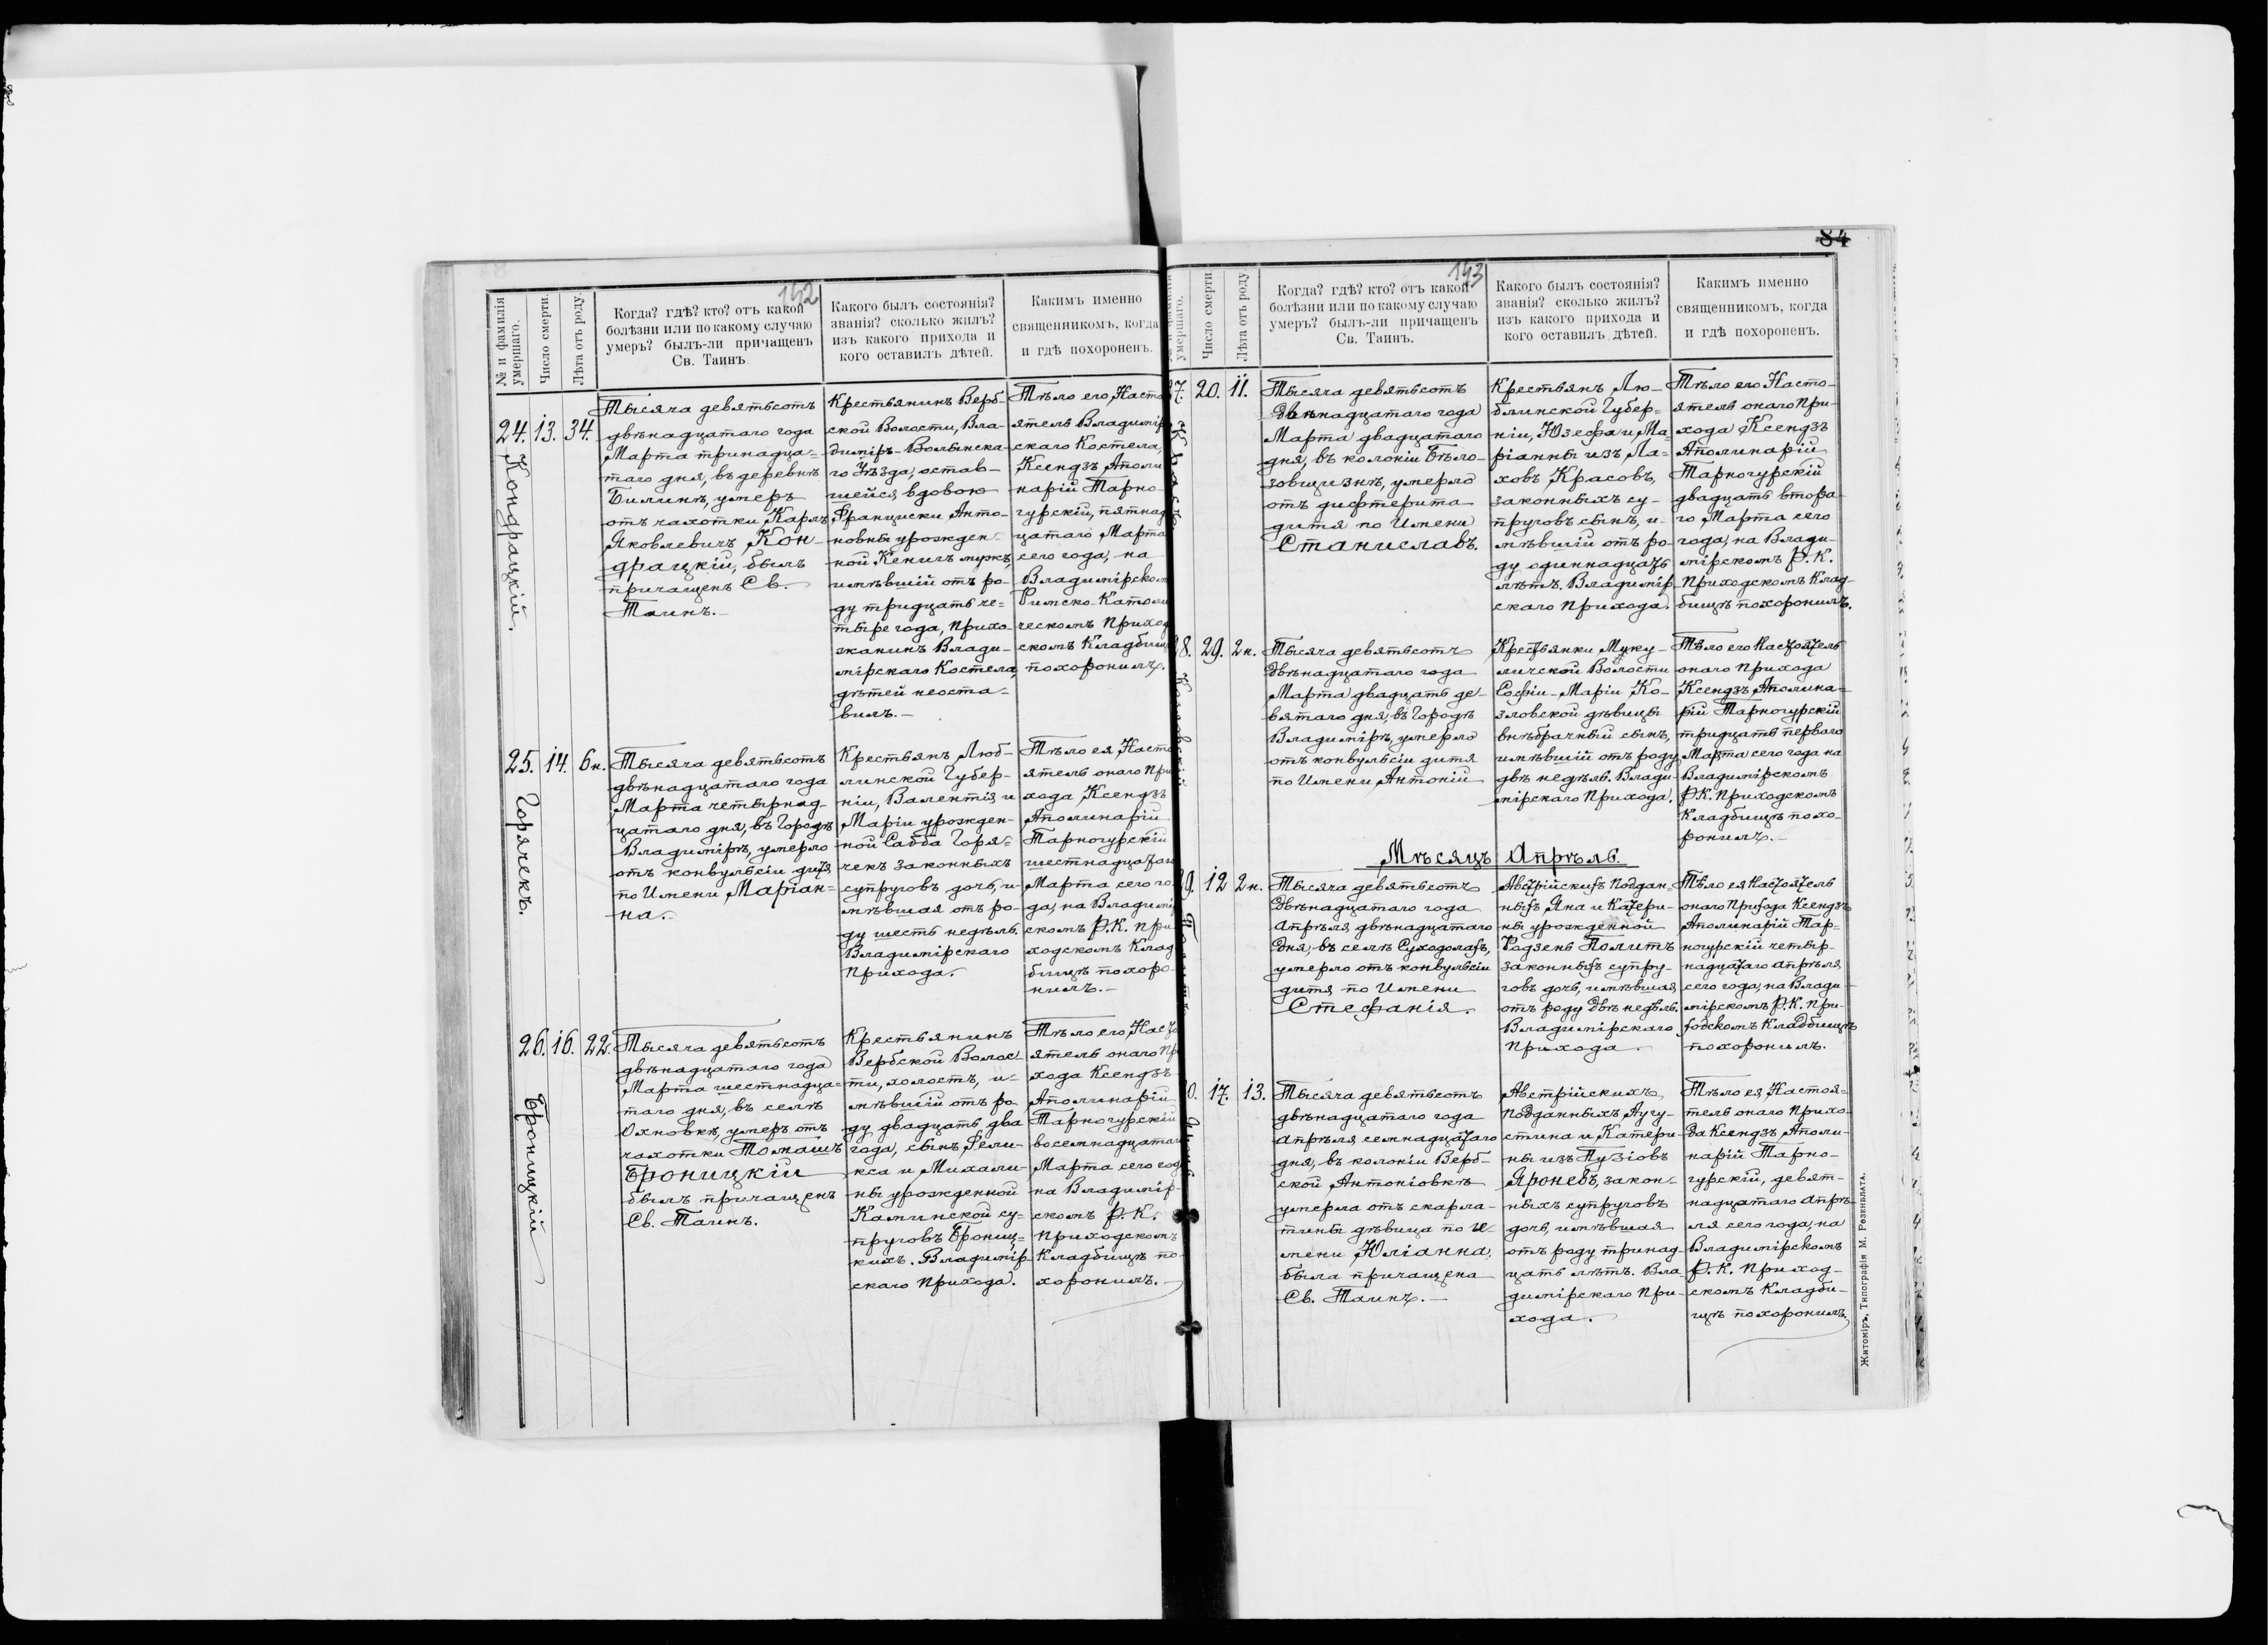 152
№ и фамилія умершаго.
Число смерти.
Лѣта отъ роду.
Когда? гдѣ? кто? отъ какой
болѣзни или по какому случаю
умеръ? былъ-ли причащенъ
Св. Таинъ
Какого былъ состоянія?
званія? сколько жилъ?
изъ какого прихода и
кого оставилъ дѣтей.
Какимъ именно
священникомъ, когда
и гдѣ похороненъ.
24.
Кондрацкій.
13.
34.
Тысяча девятьсотъ
двѣнадцатаго года
Марта тринадца=
таго дня, въ деревнѣ
Билинѣ, умеръ
отъ чахотки Карлъ
Яковлевичъ Кон-
драцкій, былъ
причащенъ Св.
Таинъ.-
Крестьянинъ Верб-
ской Волости, Вла-
диміръ-Волынска-
го Уѣзда, остав-
шейся вдовою
Франциски Анто-
новны урожден-
ной Кеничъ мужъ,
имѣвшій отъ ро-
ду тридцать че=
тыре года, прихо-
жанинъ Влади-
мірскаго Костела,
дѣтей неоста-
вилъ.-
Тѣло его, Насто
ятель Владимір
скаго Костела,
Ксендзъ Аполи
нарій Тарно-
гурскій, пятнад
цатаго Марта
сего года, на
Владимірском
Римско-Католи
ческомъ Приход
скомъ Кладбищ
похоронилъ.
25.
Горячекъ.
14.
6н.
Тысяча девятьсотъ
двѣнадцатаго года
Марта четырнад-
цатаго дня, въ Городѣ
Владимірѣ, умерло
отъ конвульсіи дитя
по Имени Маріан=
на.
Крестьянъ Люб-
линской Губер-
ніи, Валентія и
Маріи урожден-
ной Сабба Горя=
чекъ законныхъ
супруговъ дочь, и-
мѣвшая отъ ро-
ду шесть недѣль.
Владимірскаго
Прихода.
Тѣло ея, Насто
ятель онаго При
хода Ксендзъ
Аполинарій
Тарногурскій
шестнадцатаго
Марта сего го
да, на Владимір
скомъ Р.К. При
ходскомъ Клад
бищѣ похоро-
нилъ.-
26.
Броницкій
16.
22.
Тысяча девятьсотъ
двѣнадцатаго года
Марта шестнадца=
таго дня, въ селѣ
Охновкѣ, умеръ отъ
чахотки Томашъ
Броницкій
былъ причащенъ
Св. Таинъ.
Крестьянинъ
Вербской Волос
ти, холостъ, и-
мѣвшій отъ ро
ду двадцать два
года, сынъ Фели-
кса и Михали-
ны урожденной
Каминской су=
пруговъ Брониц=
кихъ. Владимір-
скаго Прихода.
Тѣло его, Насто
ятель онаго Пр
хода Ксендзъ
Аполинарій
Тарногурскій
восемнадцатаго
Марта сего год
на Владимір-
скомъ Р.К.
Приходскомъ
Кладбищѣ по-
хоронилъ.-
84
153
умершаго.
Число смерти.
Лѣта отъ роду.
Когда? гдѣ? кто? отъ какой
болѣзни или по какому случаю
умеръ? былъ-ли причащенъ
Св. Таинъ.
Какого былъ состоянія?
званія? сколько жилъ?
изъ какого прихода и
кого оставилъ дѣтей.
Какимъ именно
священникомъ, когда
и гдѣ похороненъ.
27.
20.
11.
Тысяча девятьсотъ
двѣнадцатаго года
Марта двадцатаго
дня, въ колоніи Бѣло-
зовщизнѣ, умерло
отъ дифтерита
дитя по Имени
Станиславъ.
Крестьянъ Лю-
блинской Губер=
ніи, Юзефа и Ма=
ріанны изъ Ла=
ховъ Красовъ,
законныхъ су-
пруговъ сынъ, и-
мѣвшій отъ ро-
ду одиннадцать
лѣтъ. Владимір
скаго Прихода.
Тѣло его Насто-
ятель онаго При-
хода Ксендзъ
Аполинарій
Тарногурскій
двадцать втора-
го Марта сего
года, на Влади-
мірскомъ Р.К.
Приходскомъ Клад-
бищѣ похоронилъ.
28.
29.
2н.
Тысяча девятьсотъ
двѣнадцатаго года
Марта двадцать де-
вятаго дня, въ Городѣ
Владимірѣ, умерло
отъ конвульсіи дитя
по Имени Антоній
Крестьянки Муку-
личской Волости
Софіи-Маріи Ко-
зловской дѣвицы
внѣбрачный сынъ,
имѣвшій отъ роду
двѣ недѣль. Влади-
мірскаго Прихода.
Тѣло его Настоятель
онаго Прихода
Ксендзъ Аполина=
рій Тарногурскій
тридцать перваго
Марта сего года на
Владимірскомъ
Р.К. Приходскомъ
Кладбищѣ похо-
ронилъ.-
Мѣсяцъ Апрѣль.
12
2н.
Тысяча девятьсотъ
двѣнадцатаго года
Апрѣля двѣнадцатаго
дня, въ селѣ Суходолахъ,
умерло отъ конвульсіи
дитя по Имени
Стефанія.
Австрійскихъ поддан-
ныхъ Яна и Катери-
ны урожденной
Родзень Политъ
законныхъ супру-
говъ дочь, имѣвшая
отъ роду двѣ недѣль.
Владимірскаго
Прихода.
Тѣло ея Настоятель
онаго Прихода Ксендзъ
Аполинарій Тар-
ногурскій четыр-
надцатаго Апрѣля
сего года, на Влади-
мірскомъ Р.К. При-
ходскомъ Кладбищѣ
похоронилъ.
17.
13.
Тысяча девятьсотъ
двѣнадцатаго года
Апрѣля семнадцатаго
дня, въ колоніи Верб-
ской Антоніовкѣ
умерла отъ скарла-
тины дѣвица по И-
мени Юліанна,
была причащена
Св. Таинъ.-
Австрійскихъ
подданныхъ Авгу-
стина и Катери-
ны изъ Пузіовъ
Яроневъ, закон-
ныхъ супруговъ
дочь, имѣвшая
отъ роду тринад
цать лѣтъ. Вла-
димірскаго При-
хода.
Тѣло ея Настоя=
тель онаго Прихо-
да Ксендзъ Аполи-
нарій Тарно-
гурскій, девят-
надцатаго Апрѣ-
ля сего года, на
Владимірскомъ
Р.К. Приход-
скомъ Кладби-
щѣ похоронилъ.
Житоміръ, Типографія М. Розенблата.